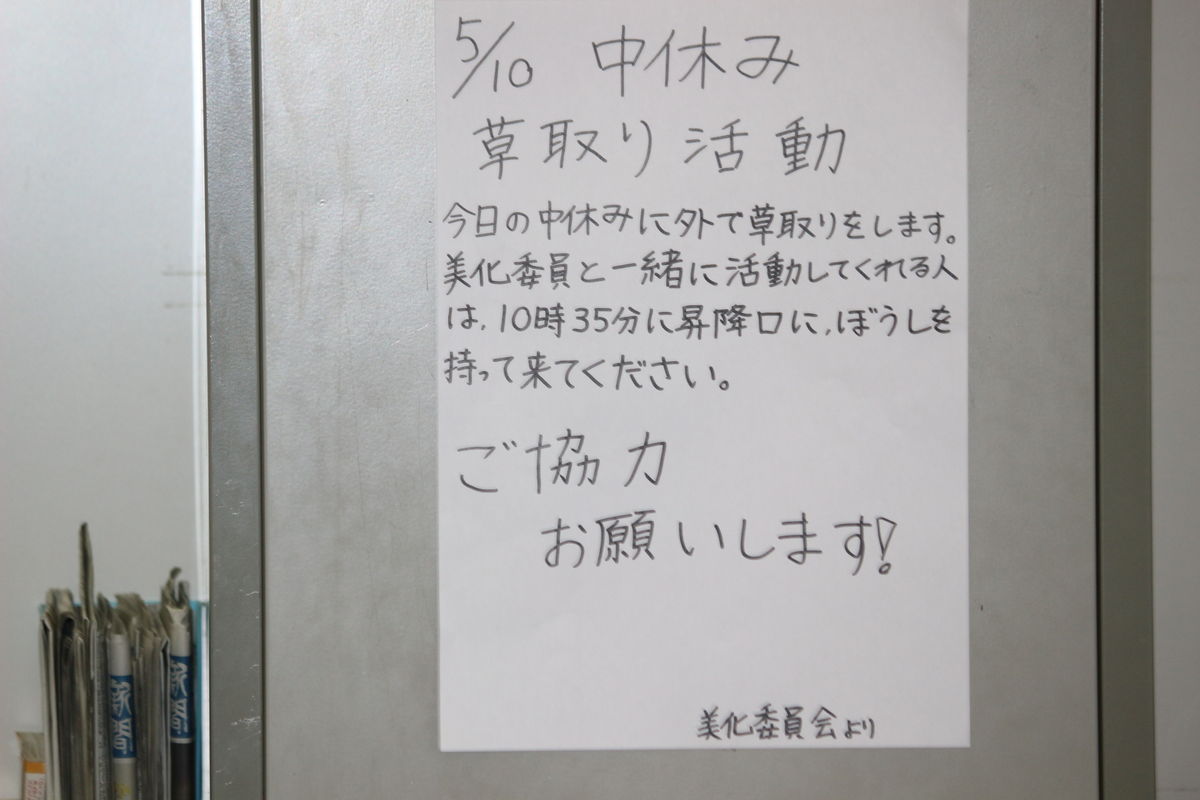 5/10 中休み
草取り活動
今日の中休みに外で草取りをします。
美化委員と一緒に活動してくれる人
は,10時35分に昇降口に,ぼうしを
持って来てください。
ご協力
お願いします!
美化委員会より
新聞
新聞